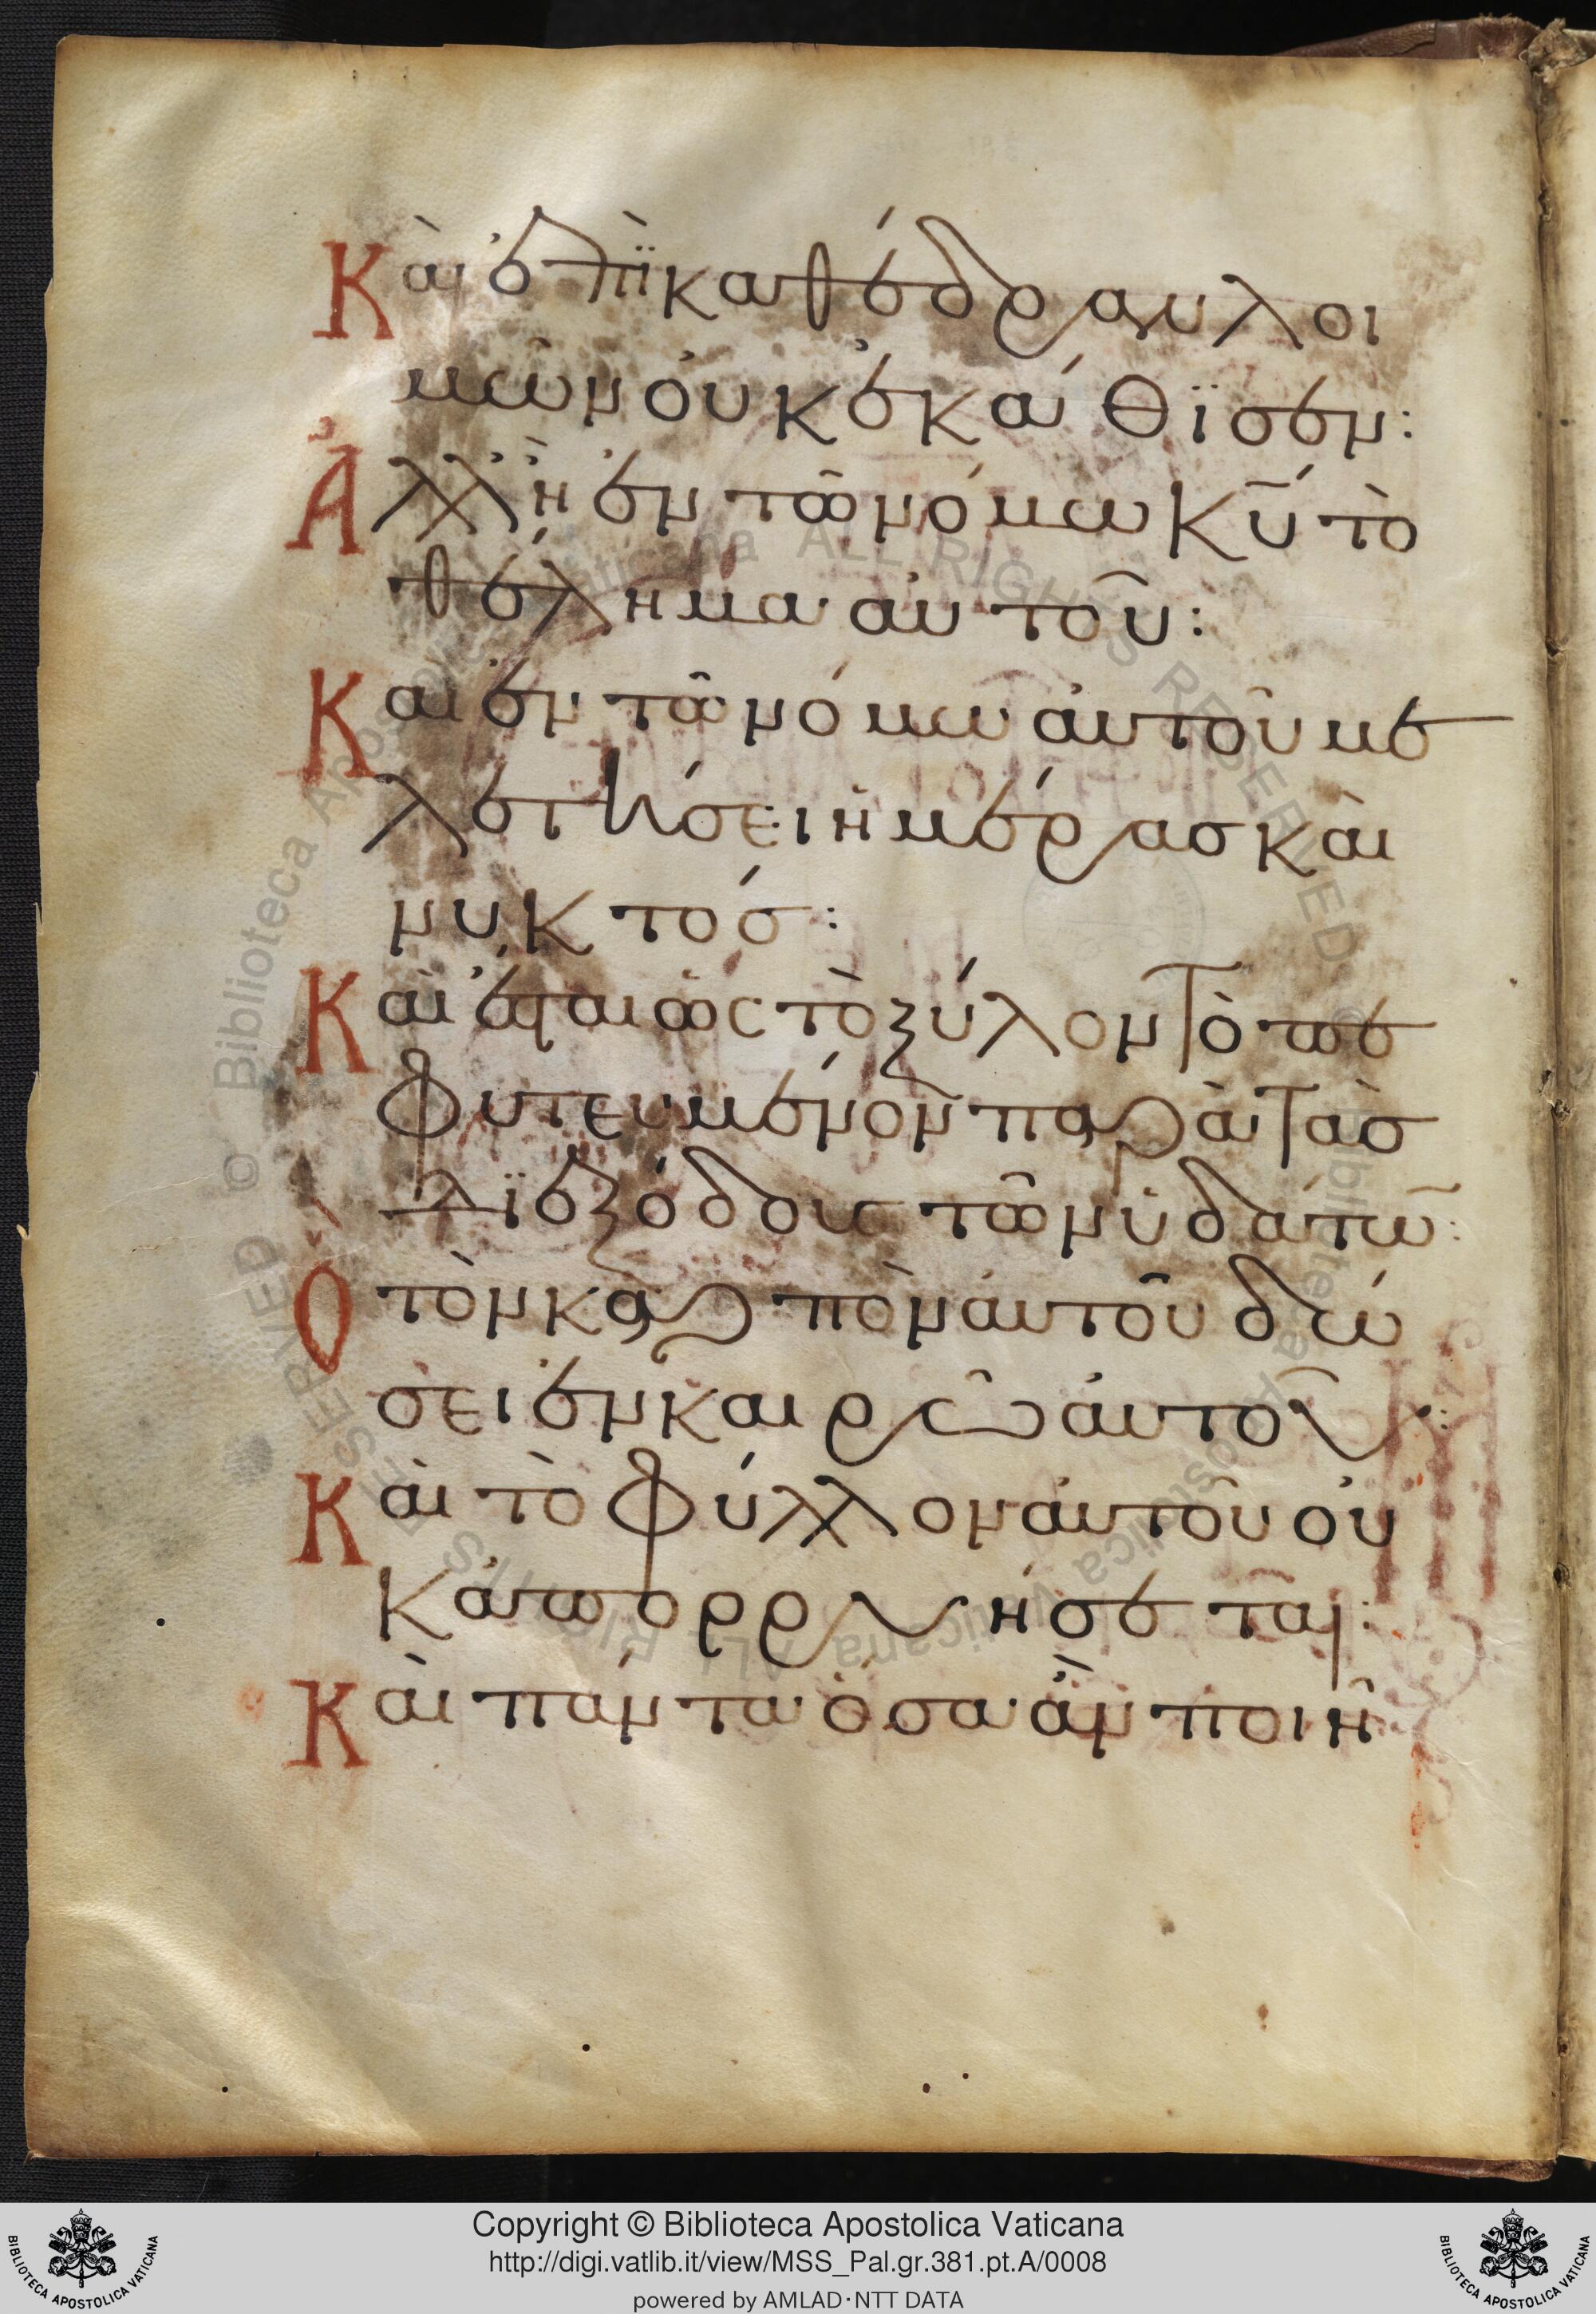 Καὶ ἐπὶ καθέδρα λοι
μῶν οὐκ ἐκάθϊσεν:
Ἀλλ' ἢ ἐν τῶ νόμω κ̅υ̅ τὸ
θέλημα αὐτοῦ:
Και ἐν τῶ νόμω αὐτοῦ με
λετήσει ἡμέρας καὶ
νυκτός:
Καὶ ἔσται ὡς τὸ ξύλον τὸ πε
φυτευμένον παρὰ τὰς
διεξόδους τῶν ὑδάτω̅:
Ὃ τὸν καρπὸν αὐτοῦ δώ
σει ἐν καιρῶ αὐτοῦ:
Καὶ τὸ φύλλον αὐτοῦ οὐ
κ ἀπορρυήσεται:
Καὶ πάντα ὅσα ἂν ποιῆ
Copyright © Biblioteca Apostolica Vaticana
http://digi.vatlib.it/view/MSS_Pal.gr.381.pt.A/0008
powered by AMLAD·NTT DATA
BIBLIOTECA APOSTOLICA VATICANA
BIBLIOTECA APOSTOLICA VATICANA
© Biblioteca Apostolica Vaticana ALL RIGHTS RESERVED